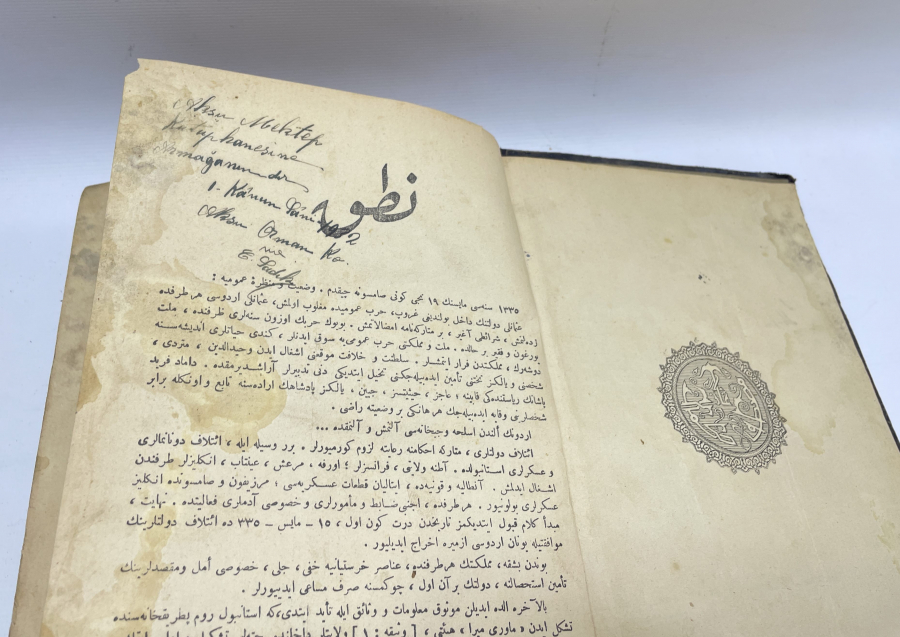 Aksu Mektep
Kütüphanesine
Armağanımdır
1. Kânun Sâni 1932
Aksu Orman Ko.
E. Sadık
نطق
١٣٣٥ سنه‌سی مایسنك ١٩ نجی كونی صامسونه چیقدم . وضعیت و منظرۀ عمومیه :
عثمانلی دولتنك داخل بولندیغی غروپ، حرب عمومیده مغلوب اولمش، عثمانلی اردوسی هر طرفده
زده‌لنمش ، شرائطی آغیر ، بر متاركه‌نامه امضالانمش . بویوك حربك اوزون سنه‌لری ظرفنده ، ملت
یورغون و فقیر بر حالده . ملت و مملكتی حرب عمومی‌یه سوق ایدنلر ، كندی حیاتلری اندیشه‌سنه
دوشه‌رك ، مملكتدن فرار ایتمشلر . سلطنت و خلافت موقعنی اشغال ایدن وحیدالدین ، متردی ،
شخصنی و یالكز تختنی تأمین ایده‌بیله‌جكنی تخیل ایتدیكی دنی تدبیرلر آراشدیرمقده . داماد فرید
پاشانك ریاستنده‌كی قابینه ؛ عاجز ، حیثیتسز ، جبین ، یالكز پادشاهك اراده‌سنه تابع و اونكله برابر
شخصلرینی وقایه ایده‌بیله‌جك هر هانكی بر وضعیته راضی .
اردونك الندن اسلحه و جبخانه‌سی آلنمش و آلنمقده ...
ائتلاف دولتلری ، متاركه احكامنه رعایته لزوم كورمیورلر . برر وسیله ایله ، ائتلاف دونانمالری
و عسكرلری استانبولده . آطنه ولایتی ، فرانسزلر ؛ اورفه ، مرعش ، عینتاب ، انكلیزلر طرفندن
اشغال ایدلمش . آنطالیه و قونیه‌ده ، ایتالیان قطعات عسكریه‌سی ؛ مرزیفون و صامسونده انكلیز
عسكرلری بولونیور . هر طرفده ، اجنبی ضابط و مأمورلری و خصوصی آدملری فعالیتده . نهایت ،
مبدأ كلام قبول ایتدیكمز تاریخدن درت كون اول ، ١٥ - مایس - ٣٣٥ ده ائتلاف دولتلرینك
موافقتیله یونان اردوسی ازمیره اخراج ایدیلیور .
بوندن بشقه ، مملكتك هر طرفنده ، عناصر خرستیانیه خفی ، جلی ، خصوصی أمل و مقصدلرینك
تأمین استحصالنه ، دولتك بر آن اول ، چوكمسنه صرف مساعی ایدییورلر .
بالآخره الده ایدیلن موثوق معلومات و وثائق ایله تأید ایتدی‌كه استانبول روم پطریقخانه‌سنده
تشكل ایدن « ماوری میرا » هیئتی ، [ وثیقه : ١ ] ولایتلر داخلنده